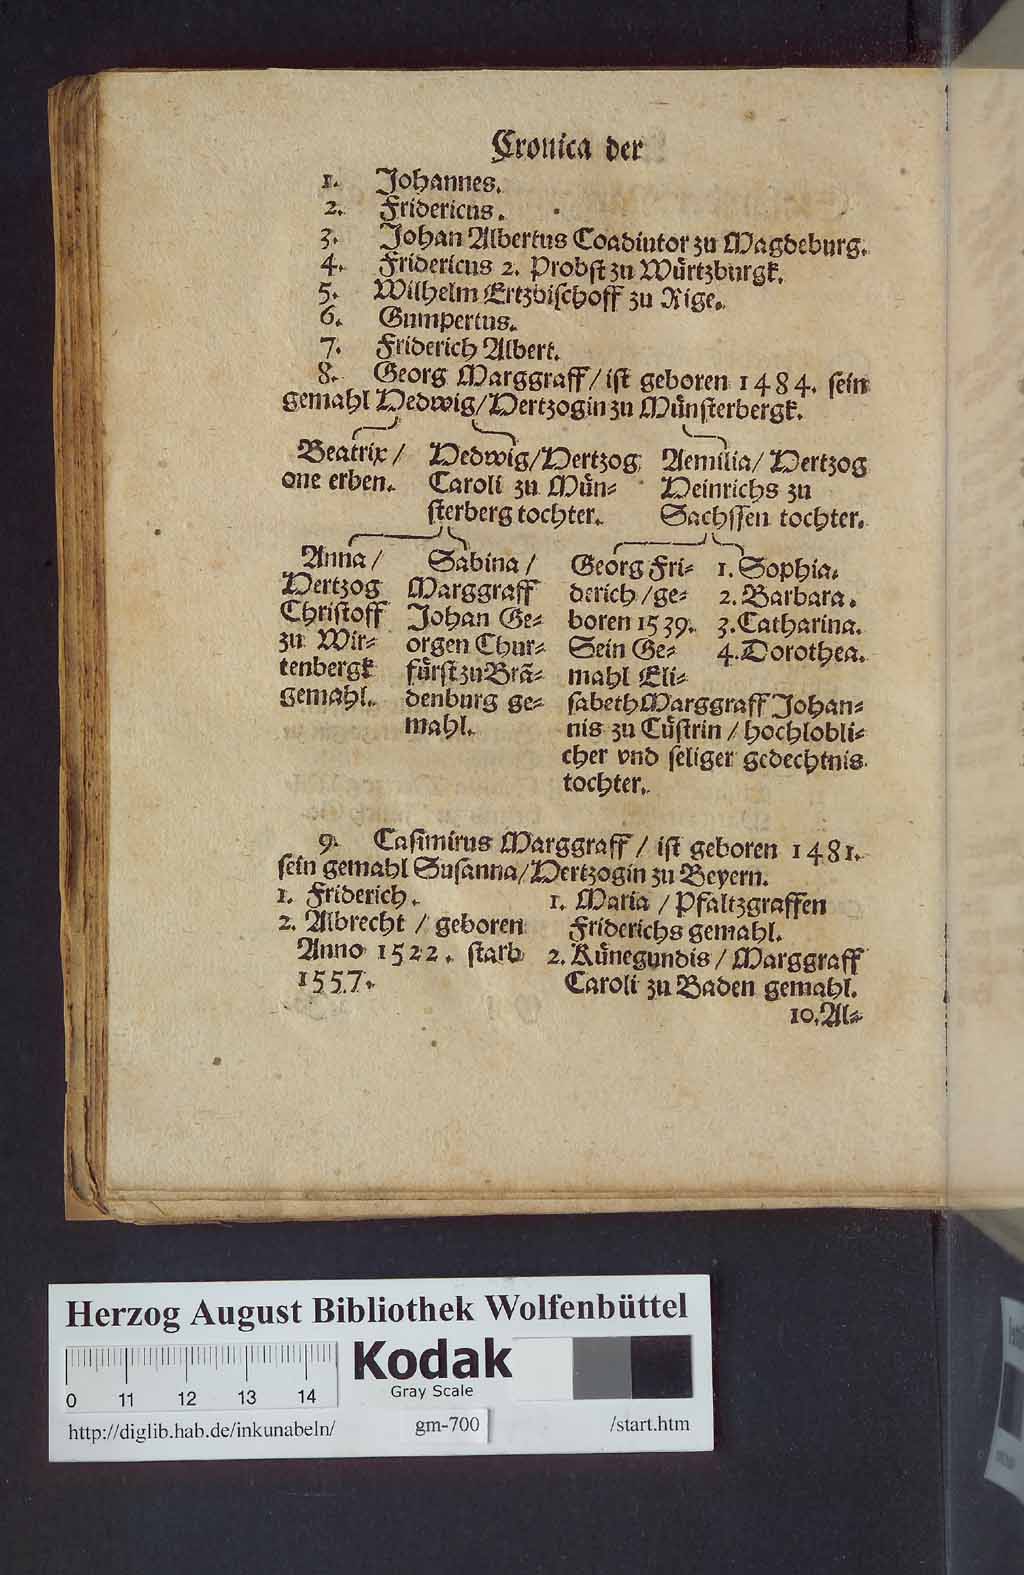 Cronica der
1. Johannes.
2. Fridericus.
3. Johan Albertus Coadiutor zu Magdeburg.
4. Fridericus 2. Probst zu Wuͤrtzburgk.
5. Wilhelm Ertzbischoff zu Rige.
6. Gumpertus.
7. Friderich Albert.
8. Georg Marggraff / ist geboren 1484. sein
gemahl Hedwig / Hertzogin zu Muͤnsterbergk.
Beatrix /
one erben.
Hedwig / Hertzog
Caroli zu Muͤn-
sterberg tochter.
Aemilia / Hertzog
Heinrichs zu
Sachssen tochter.
Anna /
Hertzog
Christoff
zu Wir-
tenbergk
gemahl.
Sabina /
Marggraff
Johan Ge-
orgen Chur-
fuͤrst zu Brã-
denburg ge-
mahl.
Georg Fri-
derich / ge-
boren 1539.
Sein Ge-
mahl Eli-
sabeth Marggraff Johan-
nis zu Cuͤstrin / hochlobli-
cher vnd seliger gedechtnis
tochter.
1. Sophia.
2. Barbara.
3. Catharina.
4. Dorothea.
9. Casimirus Marggraff / ist geboren 1481.
sein gemahl Susanna / Hertzogin zu Beyern.
1. Friderich.
2. Albrecht / geboren
Anno 1522. starb
1557.
1. Maria / Pfaltzgraffen
Friderichs gemahl.
2. Kuͤnegundis / Marggraff
Caroli zu Baden gemahl.
10. Al-
Herzog August Bibliothek Wolfenbüttel
Kodak
Gray Scale
0 11 12 13 14
http://diglib.hab.de/inkunabeln/ gm-700 /start.htm